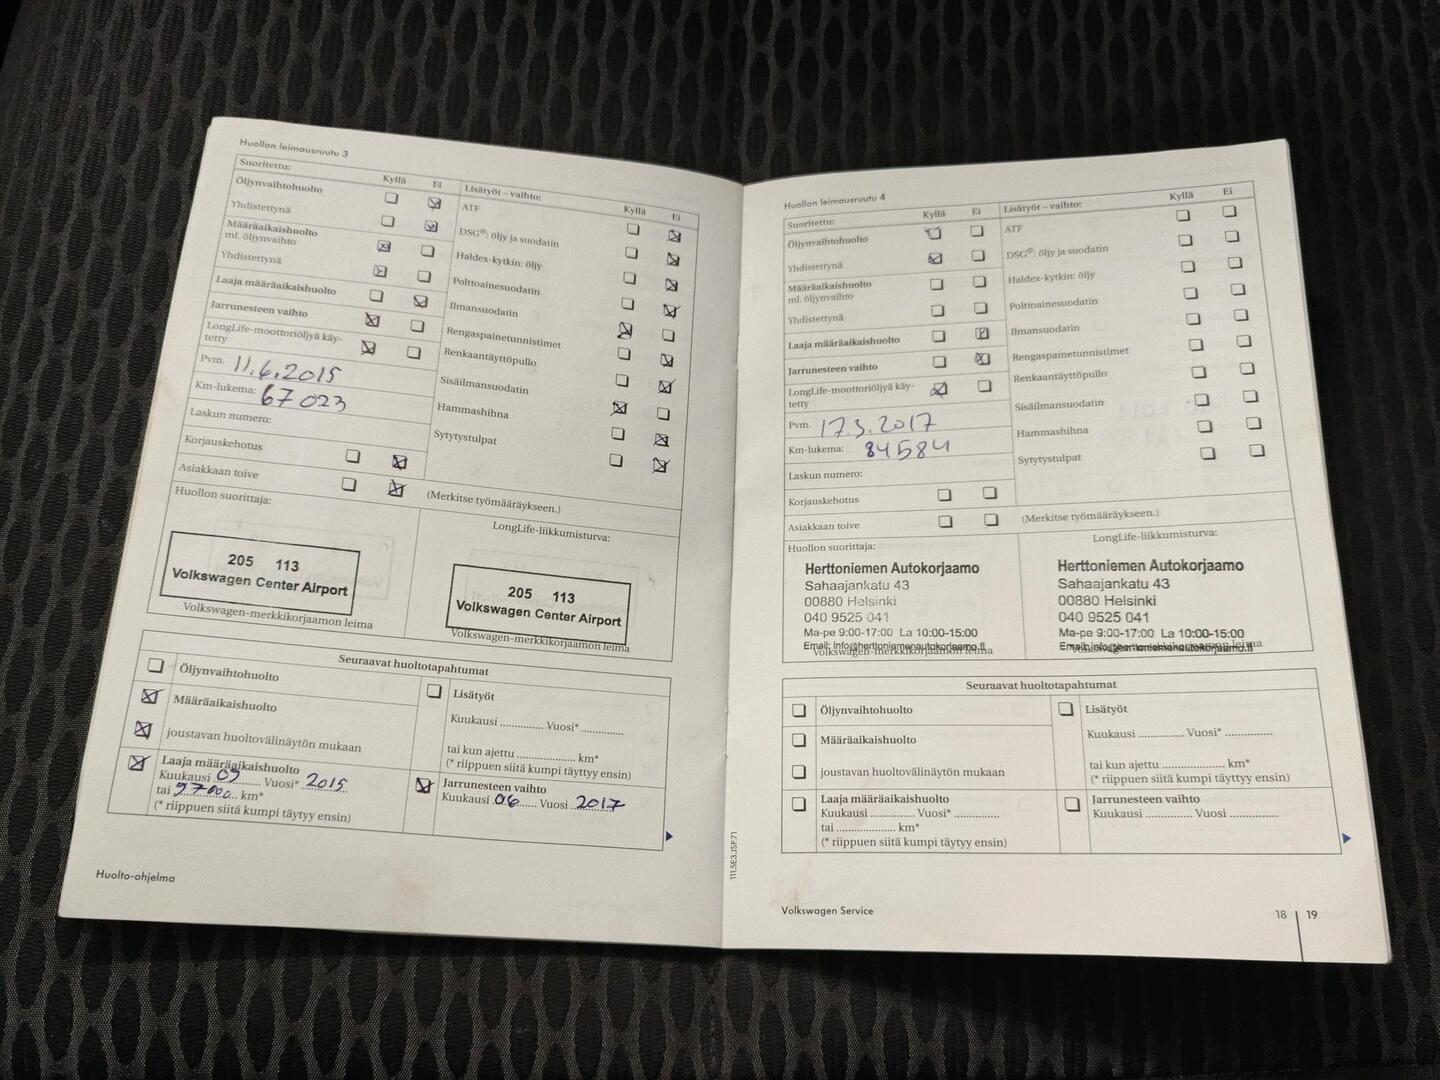 Huollon leimausruutu 3
Suoritettu:
Kyllä Ei
Öljynvaihtohuolto
Yhdistettynä
Määräaikaishuolto
ml. öljynvaihto
Yhdistettynä
Laaja määräaikaishuolto
Jarrunesteen vaihto
LongLife-moottoriöljyä käy-
tetty
Pvm. 11.6.2015
Km-lukema: 67 023
Laskun numero:
Korjauskehotus
Asiakkaan toive
(Merkitse työmääräykseen.)
Lisätyöt – vaihto:
Kyllä Ei
ATF
DSG®: öljy ja suodatin
Haldex-kytkin: öljy
Polttoainesuodatin
Ilmansuodatin
Rengaspainetunnistimet
Renkaantäyttöpullo
Sisäilmansuodatin
Hammashihna
Sytytystulpat
Huollon suorittaja:
205 113
Volkswagen Center Airport
Volkswagen-merkkikorjaamon leima
LongLife-liikkumisturva:
205 113
Volkswagen Center Airport
Volkswagen-merkkikorjaamon leima
Seuraavat huoltotapahtumat
Öljynvaihtohuolto
Määräaikaishuolto
joustavan huoltovälinäytön mukaan
Laaja määräaikaishuolto
Kuukausi 09 Vuosi* 2015
tai 97000 km*
(* riippuen siitä kumpi täytyy ensin)
Lisätyöt
Kuukausi ............... Vuosi* ...............
tai kun ajettu .................. km*
(* riippuen siitä kumpi täytyy ensin)
Jarrunesteen vaihto
Kuukausi 06 Vuosi 2017
Huolto-ohjelma
Huollon leimausruutu 4
Suoritettu:
Kyllä Ei
Öljynvaihtohuolto
Yhdistettynä
Määräaikaishuolto
ml. öljynvaihto
Yhdistettynä
Laaja määräaikaishuolto
Jarrunesteen vaihto
LongLife-moottoriöljyä käy-
tetty
Pvm. 17.3.2017
Km-lukema: 84584
Laskun numero:
Korjauskehotus
Asiakkaan toive
(Merkitse työmääräykseen.)
Lisätyöt – vaihto:
Kyllä Ei
ATF
DSG®: öljy ja suodatin
Haldex-kytkin: öljy
Polttoainesuodatin
Ilmansuodatin
Rengaspainetunnistimet
Renkaantäyttöpullo
Sisäilmansuodatin
Hammashihna
Sytytystulpat
Huollon suorittaja:
Herttoniemen Autokorjaamo
Sahaajankatu 43
00880 Helsinki
040 9525 041
Ma-pe 9:00-17:00 La 10:00-15:00
Email: info@herttoniemenautokorjaamo.fi
Volkswagen-merkkikorjaamon leima
LongLife-liikkumisturva:
Herttoniemen Autokorjaamo
Sahaajankatu 43
00880 Helsinki
040 9525 041
Ma-pe 9:00-17:00 La 10:00-15:00
Email: info@herttoniemenautokorjaamo.fi
Volkswagen-merkkikorjaamon leima
Seuraavat huoltotapahtumat
Öljynvaihtohuolto
Määräaikaishuolto
joustavan huoltovälinäytön mukaan
Laaja määräaikaishuolto
Kuukausi .............. Vuosi* ...............
tai .................... km*
(* riippuen siitä kumpi täytyy ensin)
Lisätyöt
Kuukausi ............... Vuosi* ...............
tai kun ajettu .................. km*
(* riippuen siitä kumpi täytyy ensin)
Jarrunesteen vaihto
Kuukausi ............... Vuosi ...............
111.5E3.JSP.71
Volkswagen Service
18 19